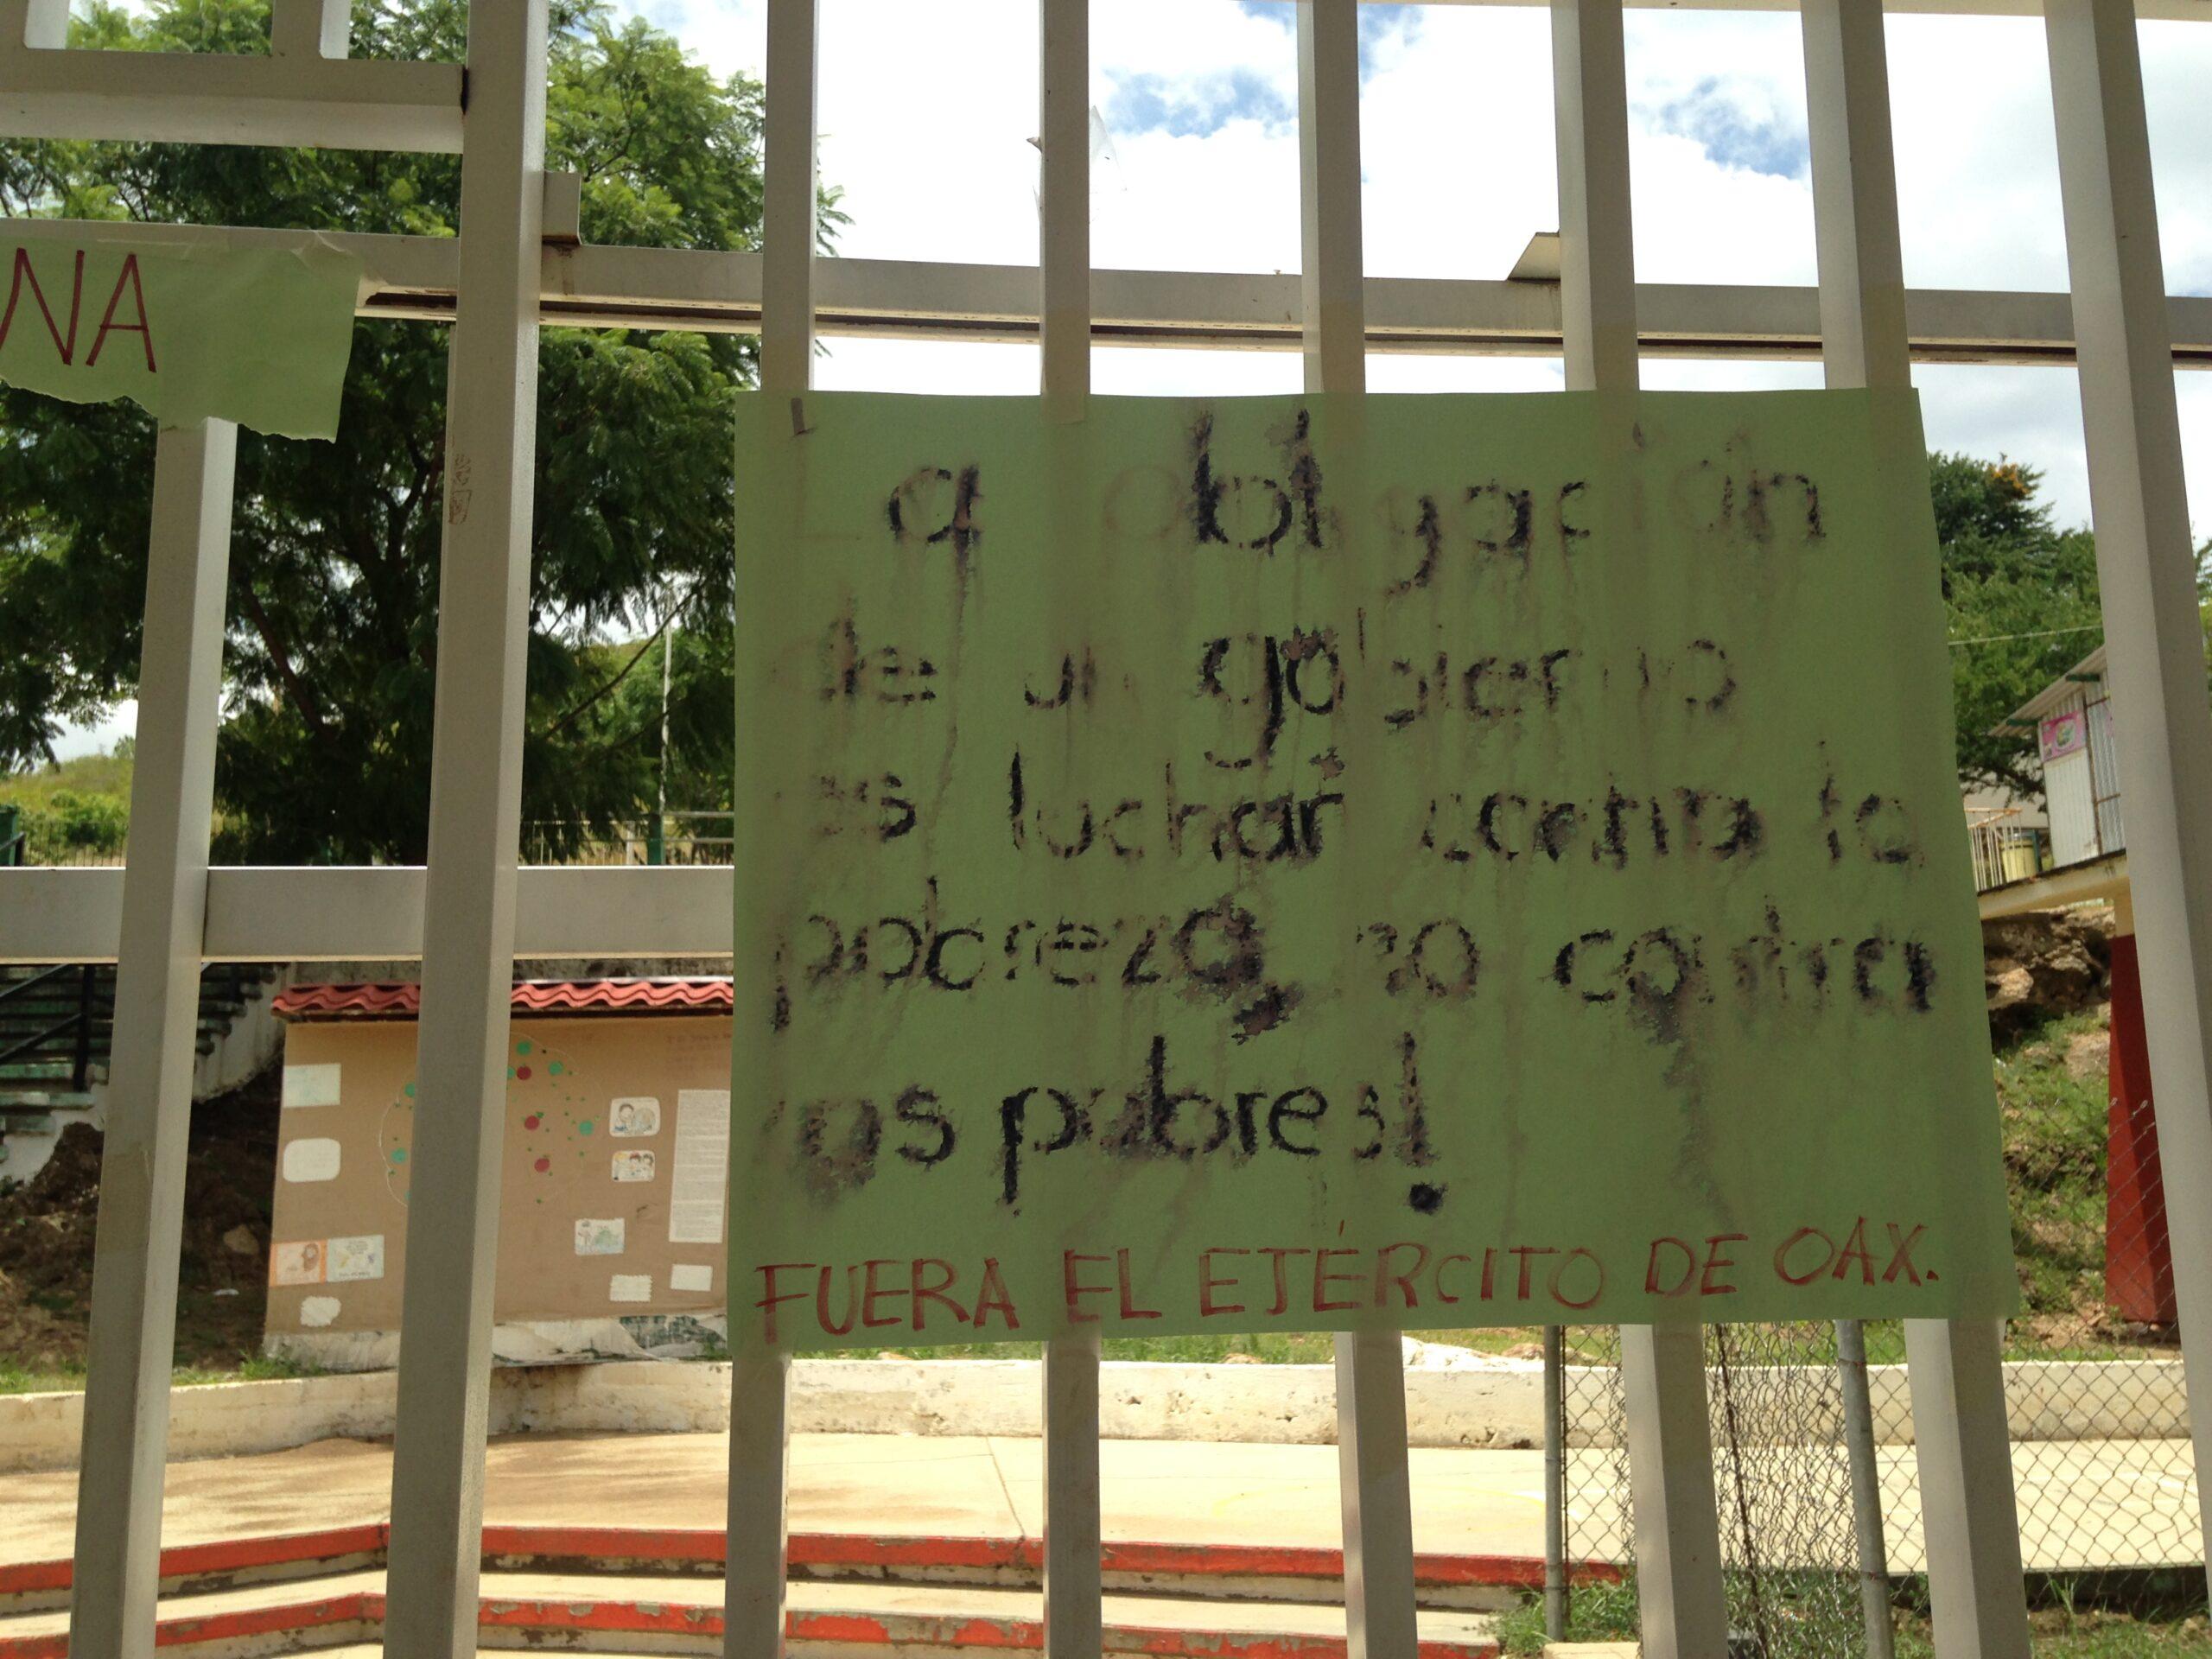 NA
La obligación
de un gobierno
es luchar contra la
pobreza, no contra
los pobres!
FUERA EL EJÉRCITO DE OAX.